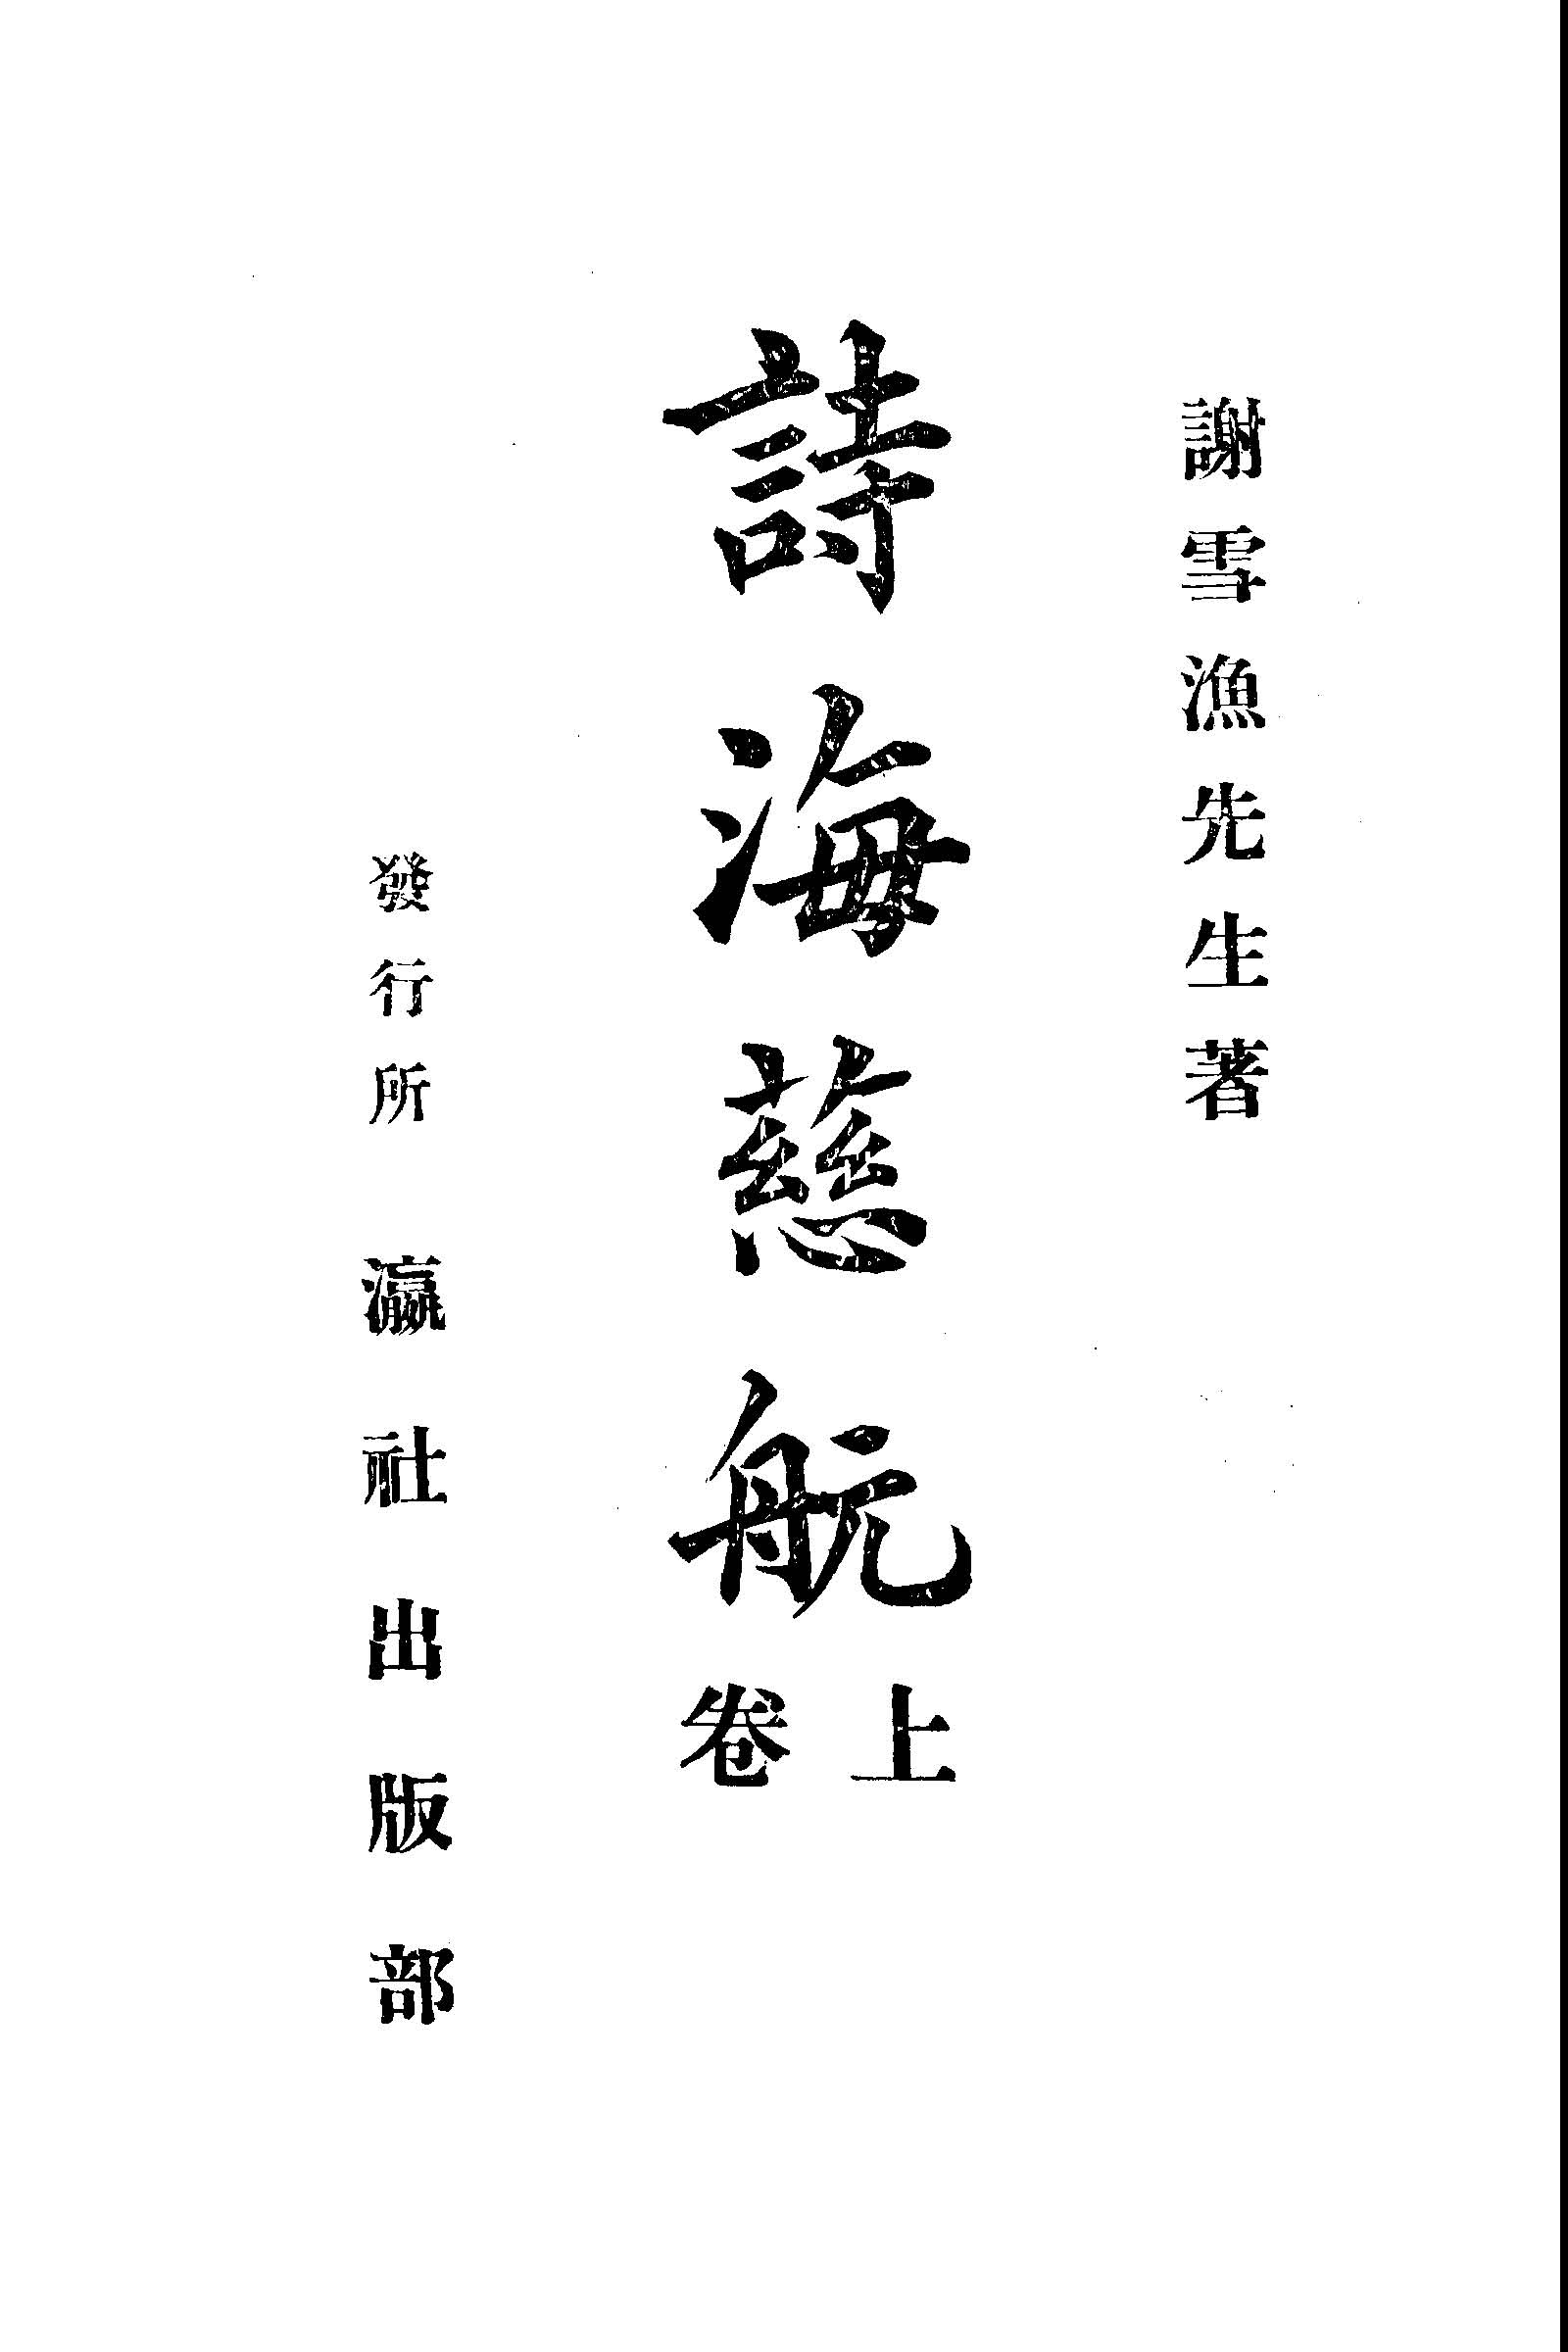 謝雪漁先生著
詩海慈航
上卷
發行所 瀛社出版部